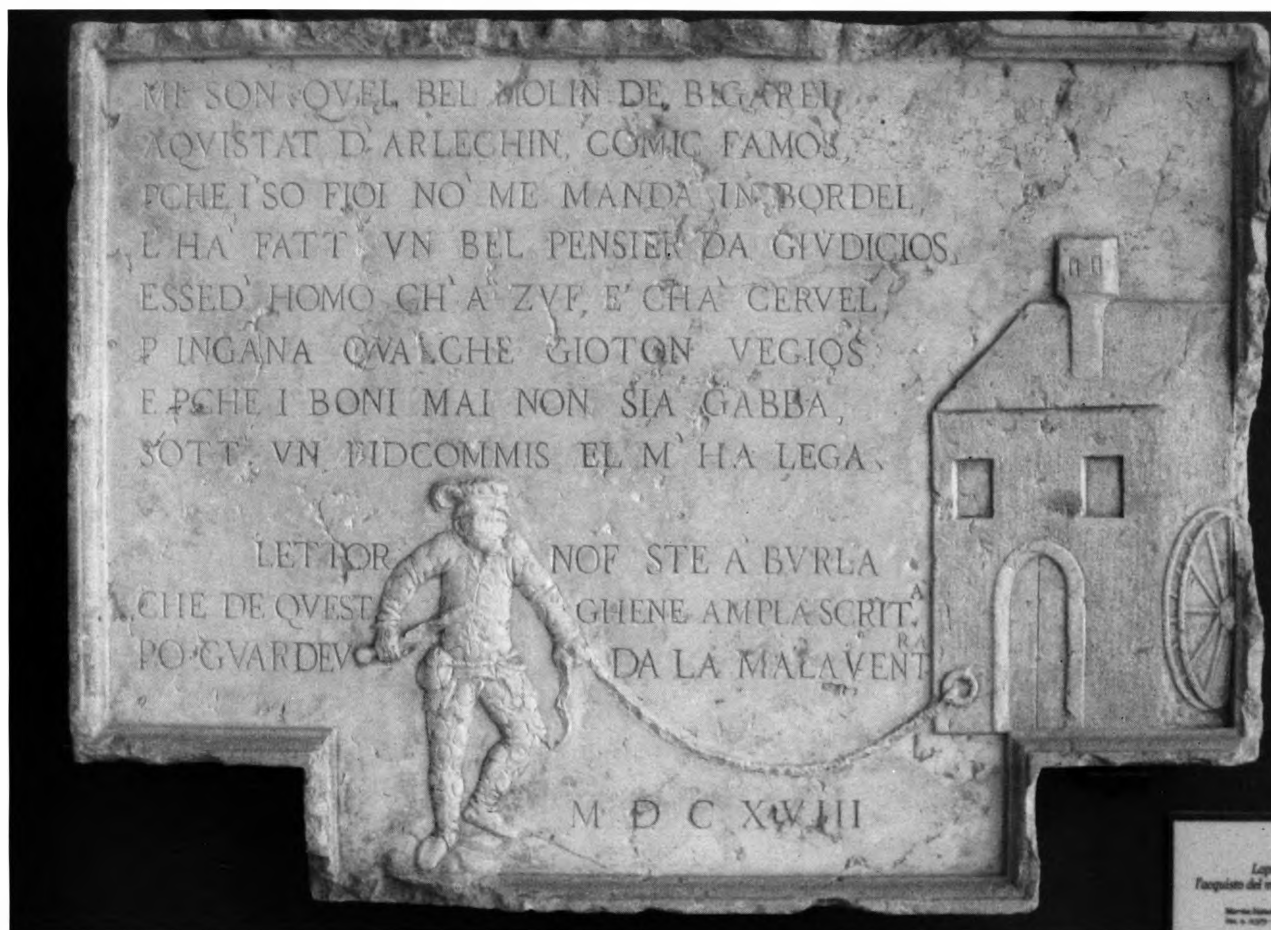 MI SON QVEL BEL MOLIN DE BIGAREL
AQVISTAT D'ARLECHIN, COMIC FAMOS,
PCHE I SO FIOI NO' ME MANDA IN BORDEL,
L'HA' FATT' VN BEL PENSIER DA GIVDICIOS,
ESSED' HOMO CH'A' ZVF, E' CHA' CERVEL,
P INGANA QVALCHE GIOTON VEGIOS
E PCHE I BONI MAI NON SIA GABBA,
SOTT' VN FIDCOMMIS EL M'HA LEGA.
LETTOR NOF STE A BVRLA
CHE DE QVEST GHENE AMPLA SCRIT.A
PO GVARDEV DA LA MALAVENTRA
M D C XVIII
l'acquisto del